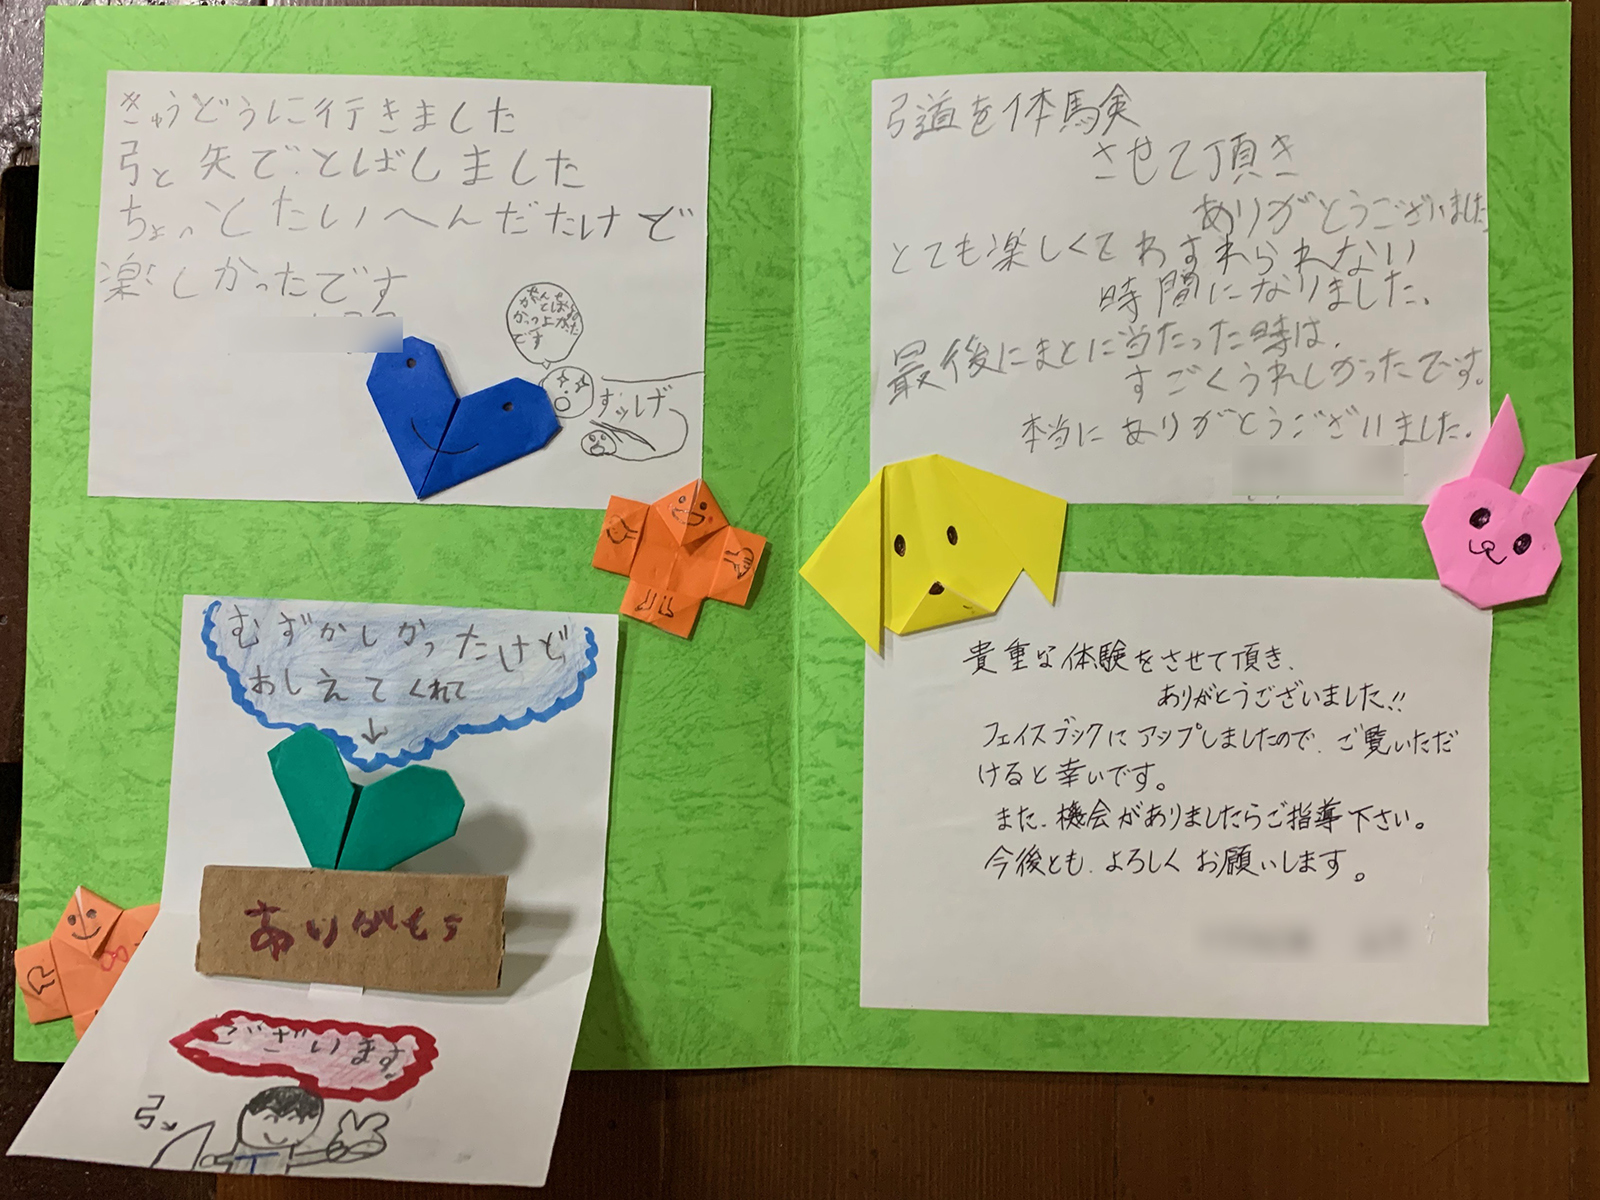 きゅうどうに行きました
弓と矢で、とばしました
ちょっとたいへんだたけど
楽しかったです
かっこよかった
です
すッしげ
むずかしかったけど
おしえてくれて
↓
ありがとう
ございます。
弓
弓道を体験
させて頂き
ありがとうございました
とても楽しくてわすれられない
時間になりました。
最後にまとに当たった時は、
すごくうれしかったです。
本当にありがとうございました。
貴重な体験をさせて頂き、
ありがとうございました!!
フェイスブックにアップしましたので、ご覧いただ
けると幸いです。
また、機会がありましたらご指導下さい。
今後とも、よろしくお願いします。